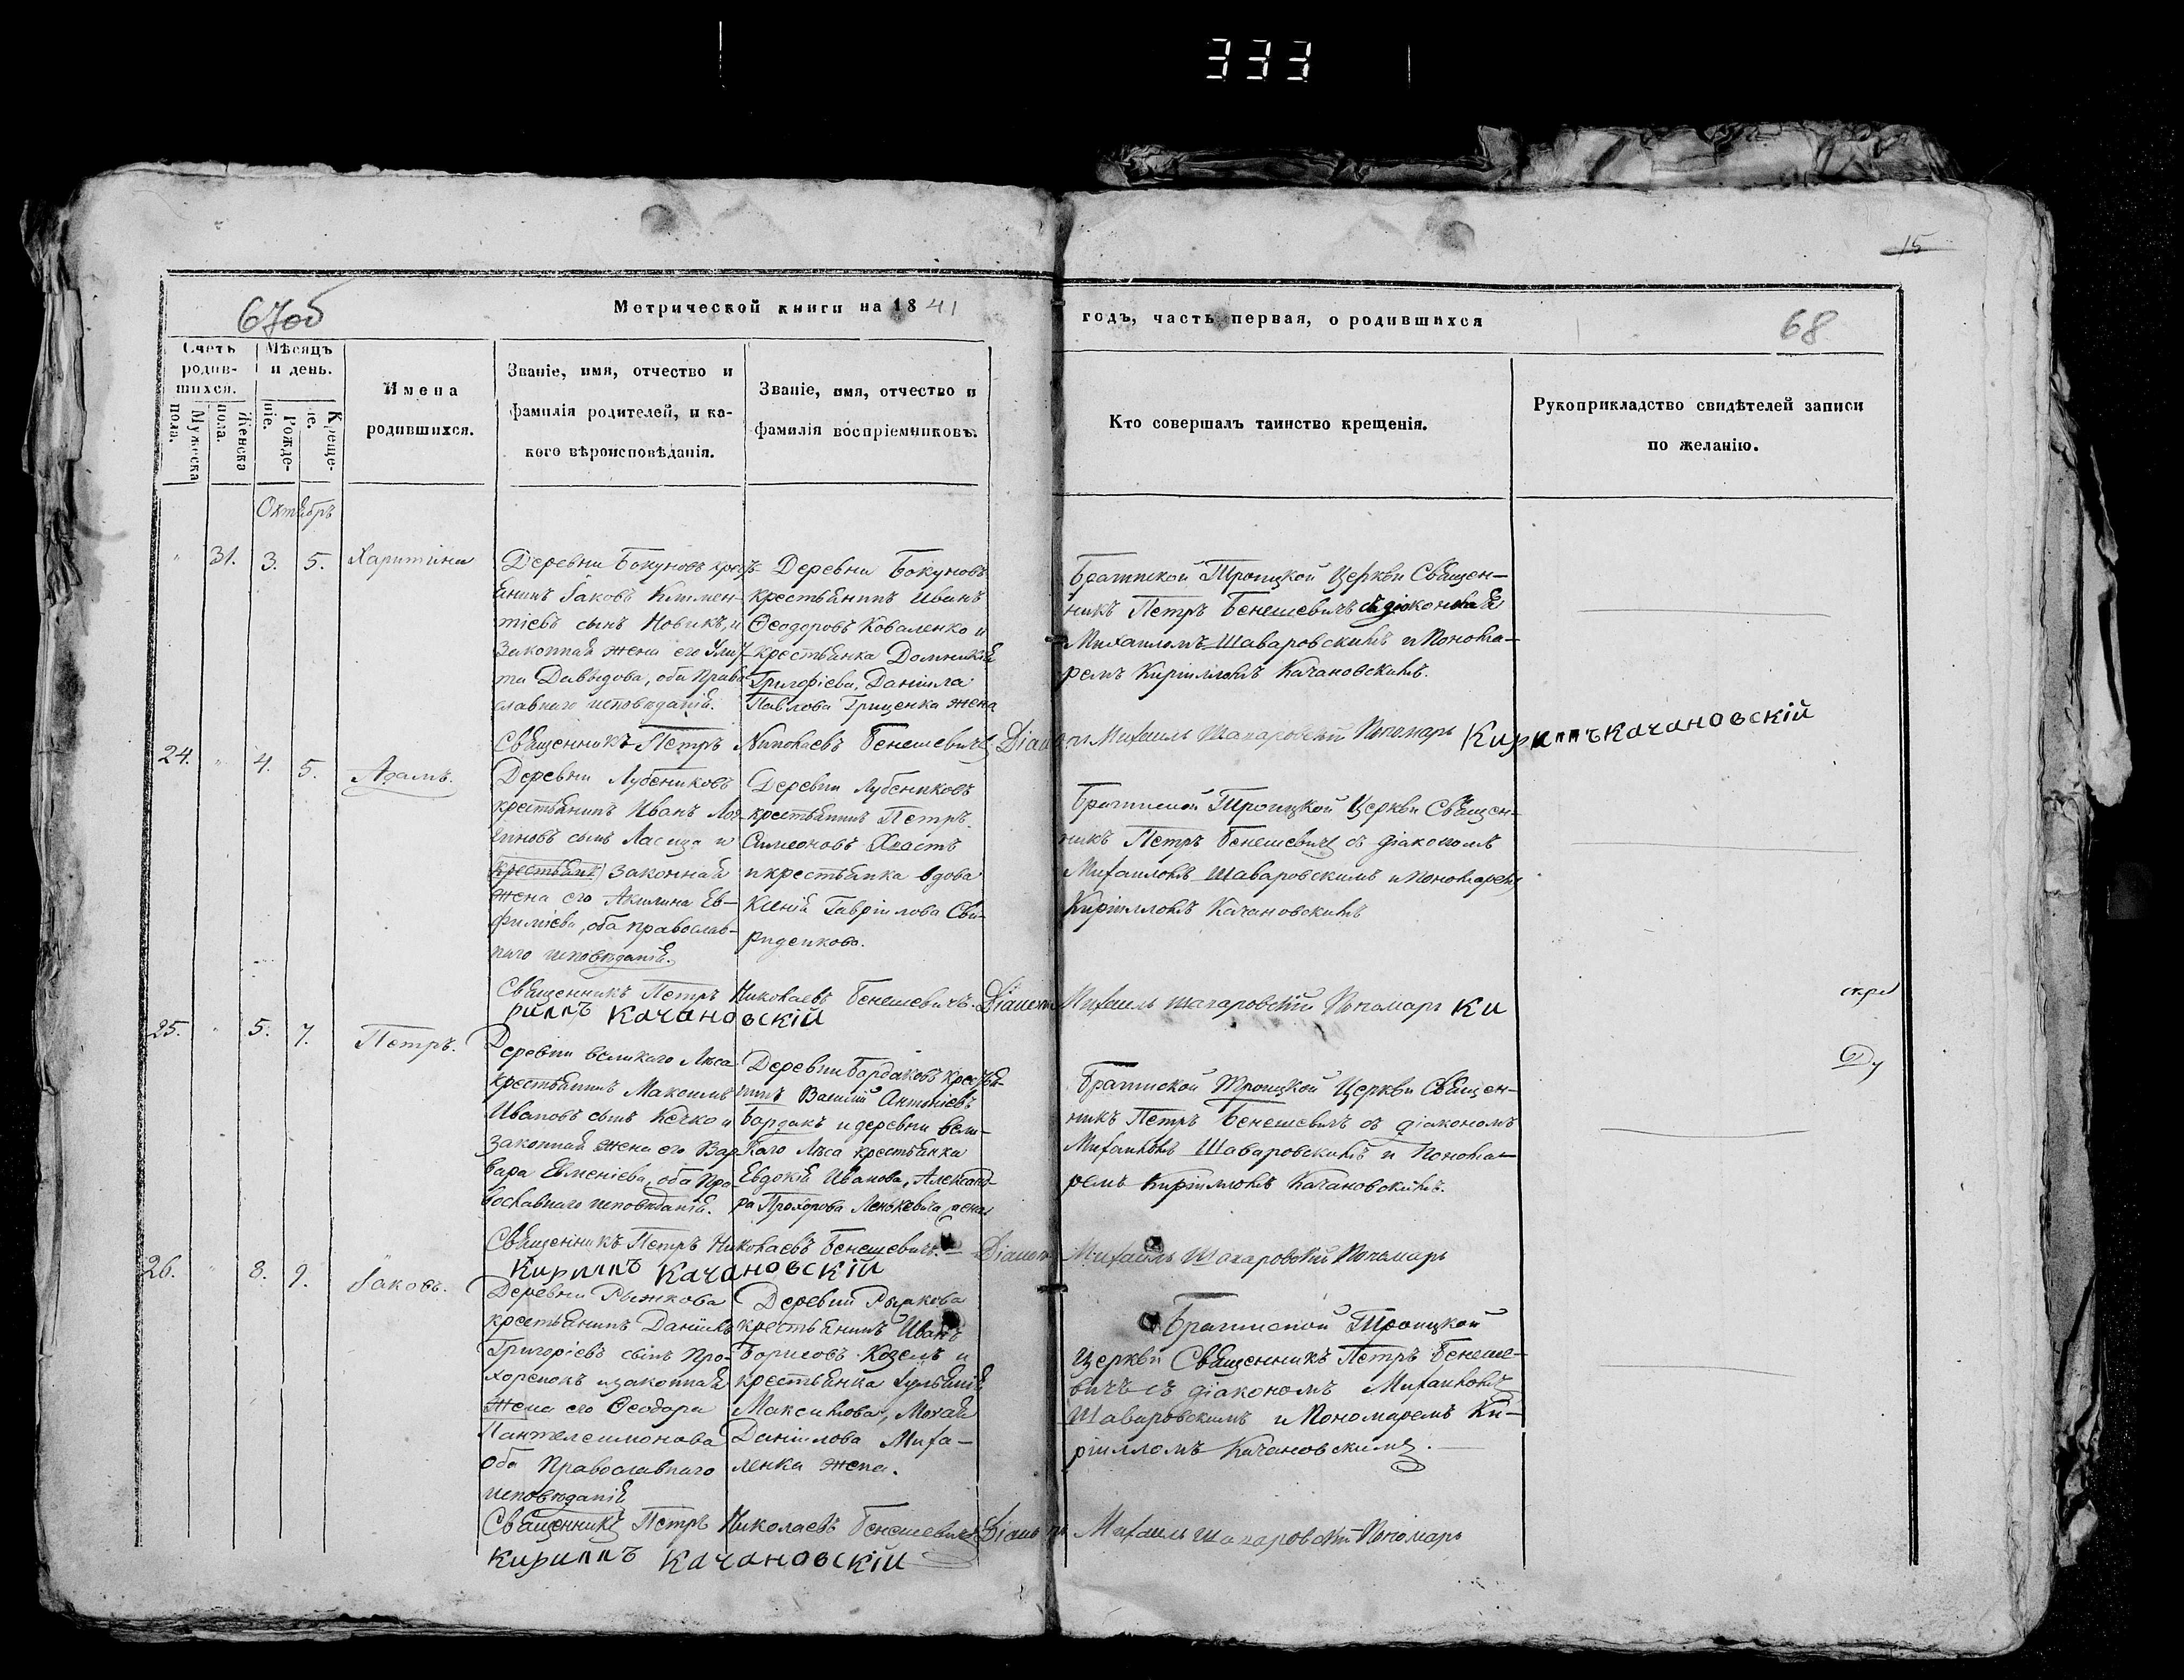 333
15
67об
Метрической книги на 1841
годъ, часть первая, о родившихся
68
Счетъ родившихся.
Мужеска пола.
Женска пола.
Мѣсяцъ и день.
Рожденіе.
Крещеніе.
Имена
родившихся.
Званіе, имя, отчество и
фамилія родителей, и ка-
кого вѣроисповѣданія.
Званіе, имя, отчество и
фамилія воспріемниковъ.
Кто совершалъ таинство крещенія.
Рукоприкладство свидѣтелей записи
по желанію.
Октябрь
" 31. 3. 5. Харитина
Деревни Бокуновъ крестъ-
янинъ Іаковъ Климен-
тіевъ сынъ Новикъ, и
законная жена его Ули-
та Давыдова, оба Право
славнаго исповѣданія.
Деревни Бокуновъ
крестьянинъ Иванъ
Ѳеодоровъ Коваленко и
крестьянка Домникія
Григоріева, Даніила
Павлова Гриценка жена
Брагинской Троицкой Церкви Священ-
никъ Петръ Бенешевичъ съ діакономъ
Михаиломъ Шаваровскимъ и Понома-
ремъ Кирилломъ Качановскимъ.
Священникъ Петръ Николаевъ Бенешевичъ Діаконъ Михаилъ Шаваровскій Пономарь Кириллъ Качановскій
24. " 4. 5. Адамъ.
Деревни Лубениковъ
крестьянинъ Иванъ Лог-
гиновъ сынъ Ласица и
законная
жена его Акилина Ев-
фиміева, оба православ-
наго исповѣданія.
Деревни Лубениковъ
крестьянинъ Петръ
Симеоновъ Хвастъ
и крестьянка вдова
Ксенія Гавріилова Сви-
риденкова.
Брагинской Троицкой Церкви Священ-
никъ Петръ Бенешевичъ съ діакономъ
Михаиломъ Шаваровскимъ и Пономаремъ
Кирилломъ Качановскимъ
Священникъ Петръ Николаевъ Бенешевичъ. Діаконъ Михаилъ Шаваровскій Пономарь Ки
риллъ Качановскій
25. " 5. 7. Петръ.
Деревни Великаго Лѣса
крестьянинъ Максимъ
Ивановъ сынъ Кечко и
законная жена его Вар
вара Евменіева, оба Пра-
вославнаго исповѣданія.
Деревни Бардаковъ крестья-
нинъ Василій Антоніевъ
Бардакъ и деревни Вели-
каго Лѣса крестьянка
Евдокія Иванова, Александ-
ра Прохорова Ленькевича жена
Брагинской Троицкой Церкви Священ-
никъ Петръ Бенешевичъ съ діакономъ
Михаиломъ Шаваровскимъ и Понома-
ремъ Кирилломъ Качановскимъ.
Священникъ Петръ Николаевъ Бенешевичъ. Діаконъ Михаилъ Шаваровскій Пономарь
Кириллъ Качановскій
26. " 8. 9. Іаковъ.
Деревни Рыжкова
крестьянинъ Даніилъ
Григоріевъ сынъ Про-
хоренокъ и законная
жена его Ѳеодора
Пантелеимонова
оба Православнаго
исповѣданія
Деревни Рыжкова
крестьянинъ Иванъ
Борисовъ Козелъ и
крестьянка Іуліанія
Максимова,
Даніилова Миха-
ленка жена.
Брагинской Троицкой
Церкви Священникъ Петръ Бенеше-
вичъ съ діакономъ Михаиломъ
Шаваровскимъ и Пономаремъ Ки-
рилломъ Качановскимъ.
Священникъ Петръ Николаевъ Бенешевичъ Діаконъ Михаилъ Шаваровскій Пономарь
Кириллъ Качановскій